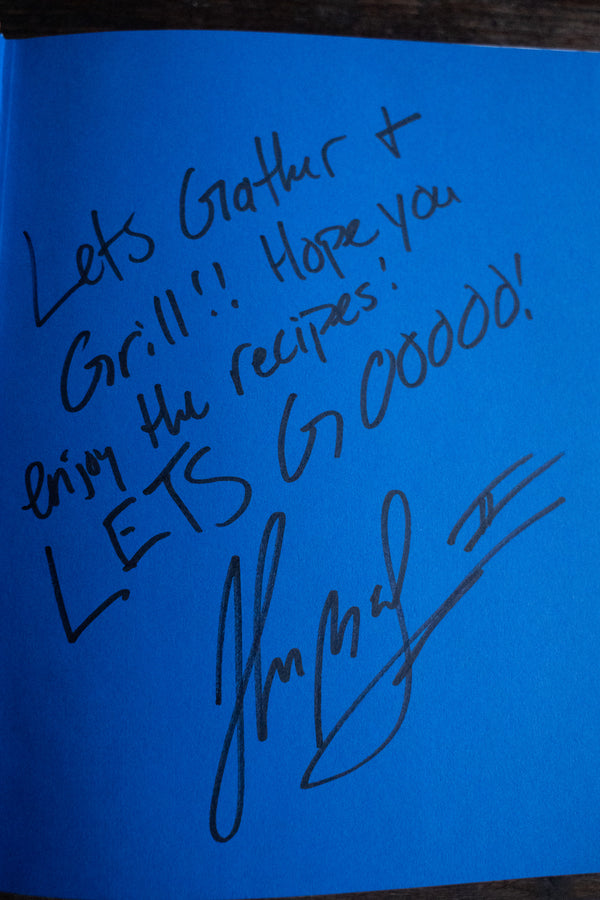 Lets Gather +
Grill!! Hope you
enjoy the recipes!
LETS GOOOOO!
II